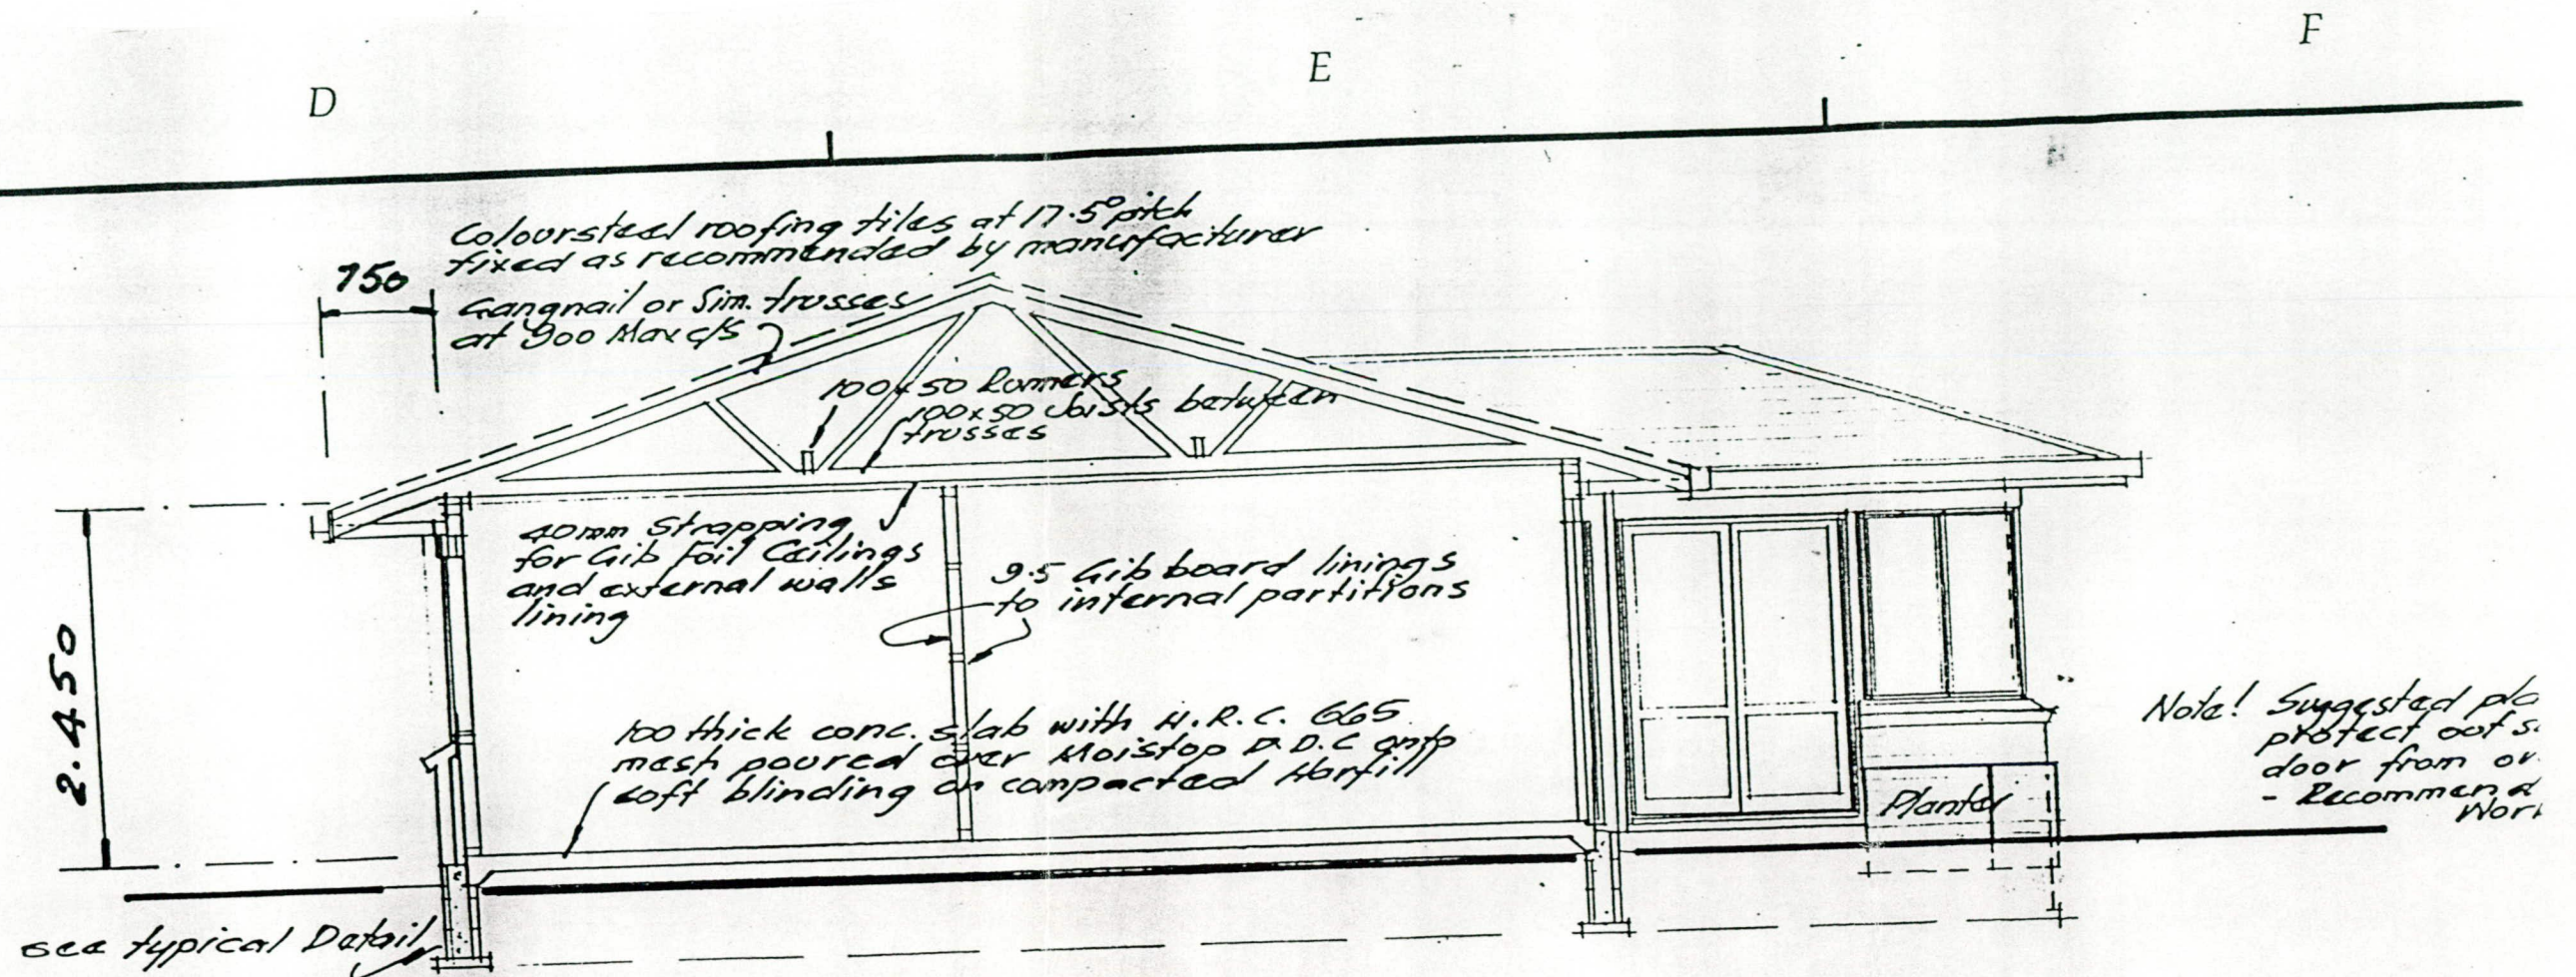 D
E
F
Coloursteel roofing tiles at 17.5° pitch
fixed as recommended by manufacturer
750
Gangnail or Sim. trusses
at 900 Max c/s
100x50 Runners
100x50 Joists between
trusses
40mm Strapping
for Gib Foil Ceilings
and external walls
lining
9.5 Gib board linings
to internal partitions
2.450
100 thick conc. slab with H.R.C. 665
mesh poured over Moistop D.P.C onto
soft blinding on compacted Harfill
Planter
Note! Suggested pla
protect out s
door from ov
- Recommend
Wor
see typical Detail